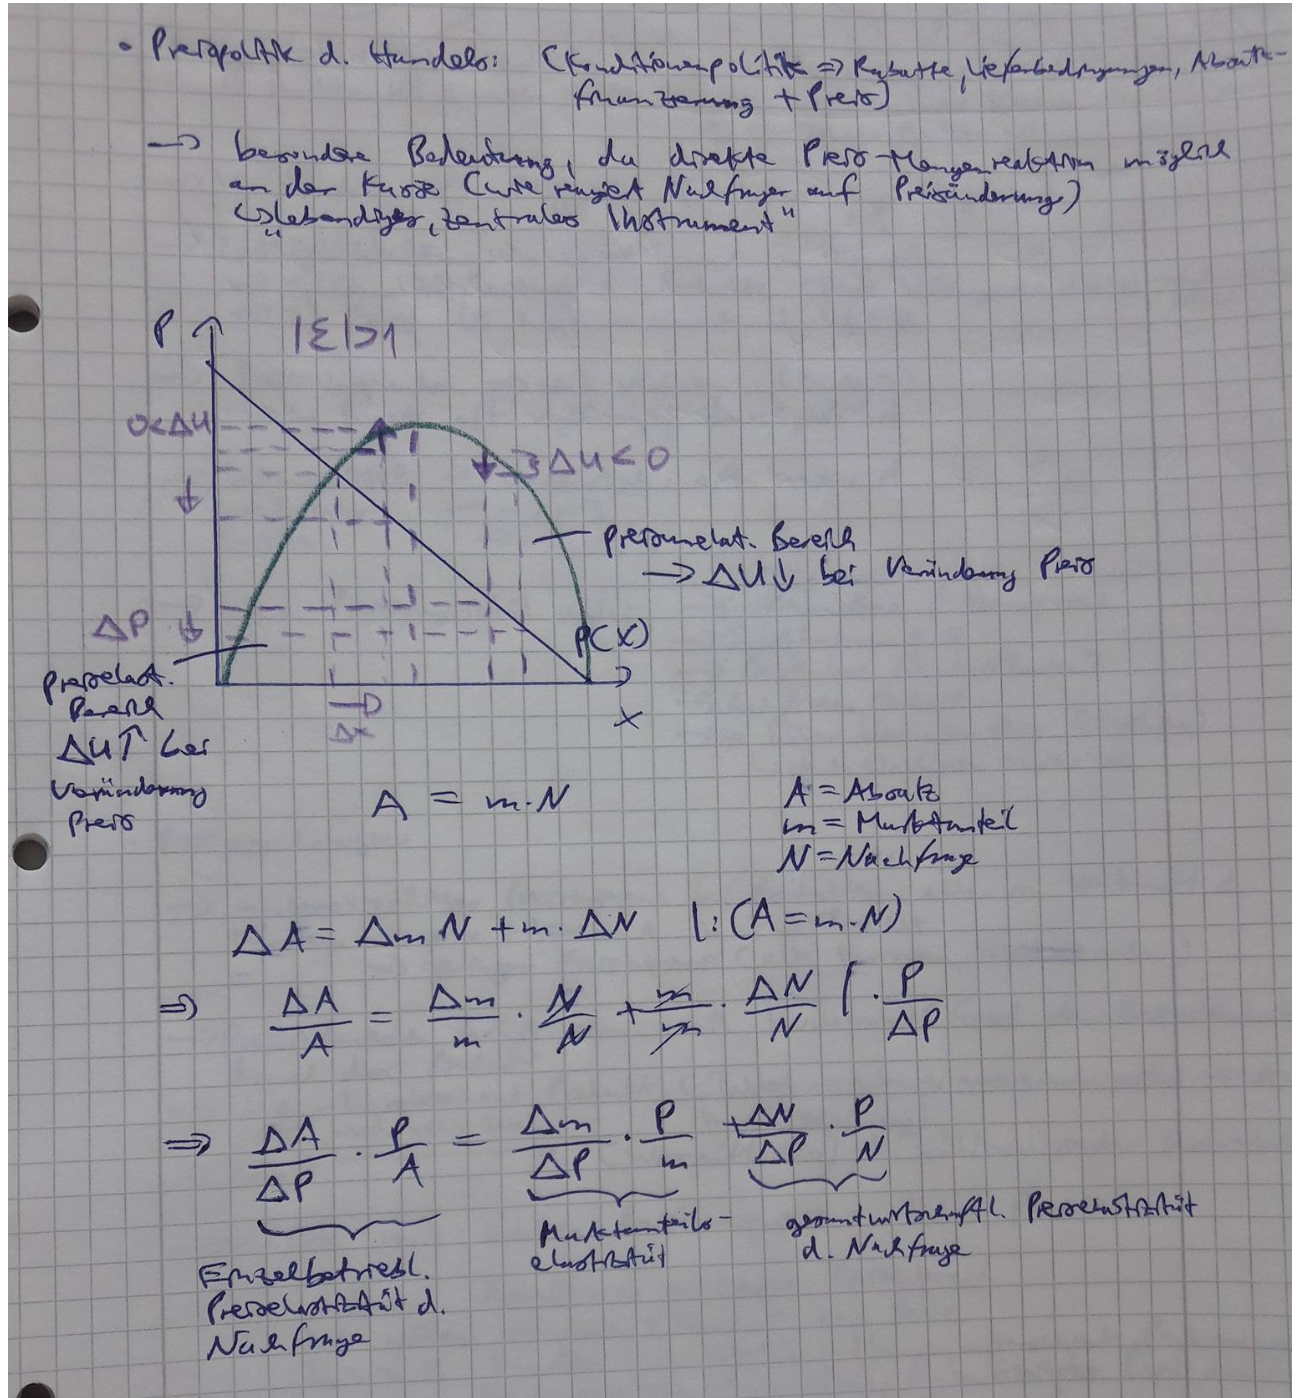 • Preispolitik d. Handels: (Konditionenpolitik ⇒ Rabatte, Lieferbedingungen, Absatz-
finanzierung + Preis)
→ besondere Bedeutung, da direkte Preis-Mengenreaktion möglich
an der Kasse (wie reagiert Nachfrager auf Preisänderung)
↳ „lebendiges, zentrales Instrument"
P
|ε|>1
0<ΔU
ΔU<0
preisunelast. Bereich
→ ΔU↓ bei Veränderung Preis
ΔP
P(X)
preiselast.
Bereich
ΔU↑ bei
Veränderung
Preis
Δx
X
A = m·N
A = Absatz
m = Marktanteil
N = Nachfrage
ΔA = Δm N + m·ΔN |:(A=m·N)
⇒ ΔA/A = Δm/m · N/N + m/m · ΔN/N | · P/ΔP
⇒ ΔA/ΔP · P/A = Δm/ΔP · P/m + ΔN/ΔP · P/N
Einzelbetriebl.
Preiselastizität d.
Nachfrage
Marktanteils-
elastizität
gesamtwirtschaftl. Preiselastizität
d. Nachfrage